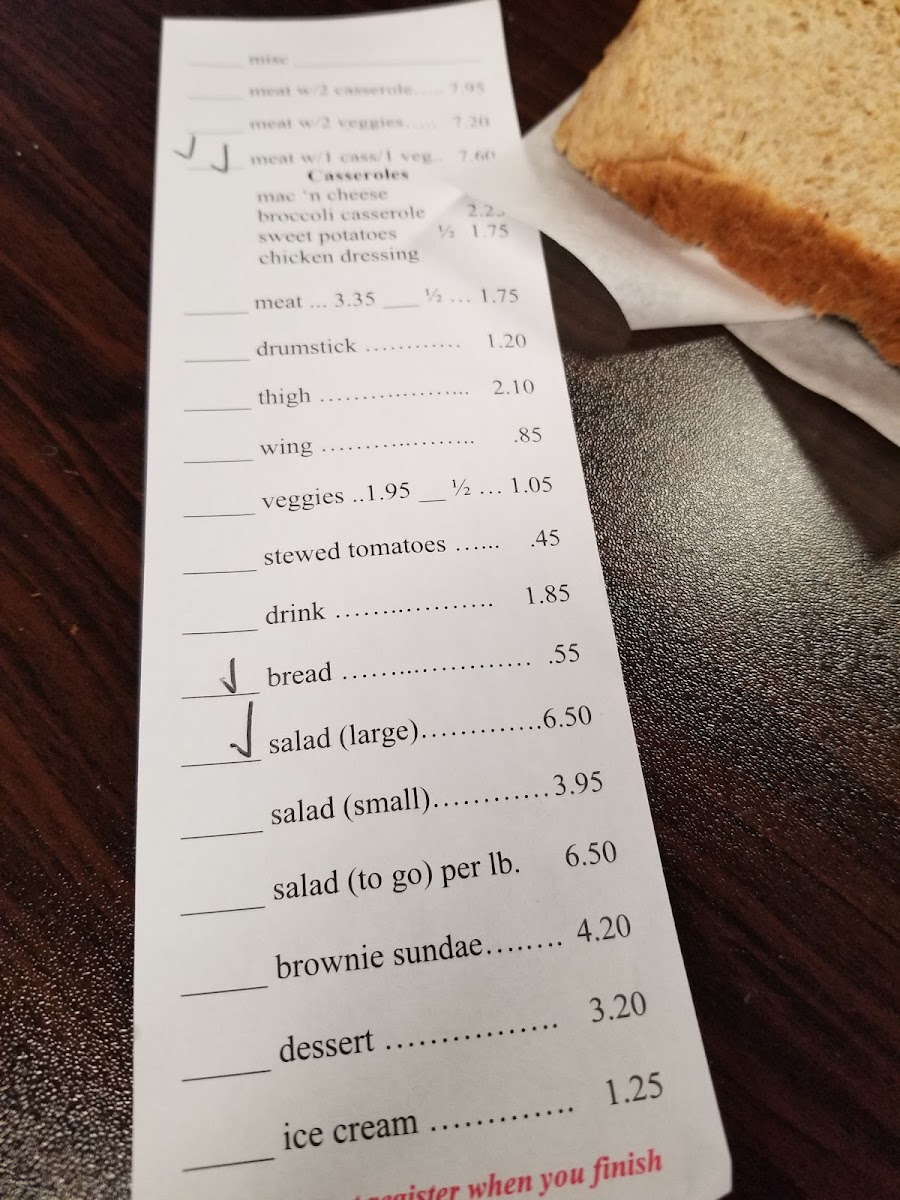 misc
meat w/2 casserole..... 7.95
meat w/2 veggies..... 7.20
meat w/1 cass/1 veg.. 7.60
Casseroles
mac 'n cheese
broccoli casserole
sweet potatoes ½ 1.75
chicken dressing
meat ... 3.35 ___ ½ ... 1.75
drumstick ............ 1.20
thigh .................... 2.10
wing .................... .85
veggies ..1.95 __ ½ ... 1.05
stewed tomatoes ...... .45
drink .................... 1.85
bread ........................ .55
salad (large).............6.50
salad (small)............3.95
salad (to go) per lb. 6.50
brownie sundae........ 4.20
dessert ................ 3.20
ice cream ............. 1.25
register when you finish